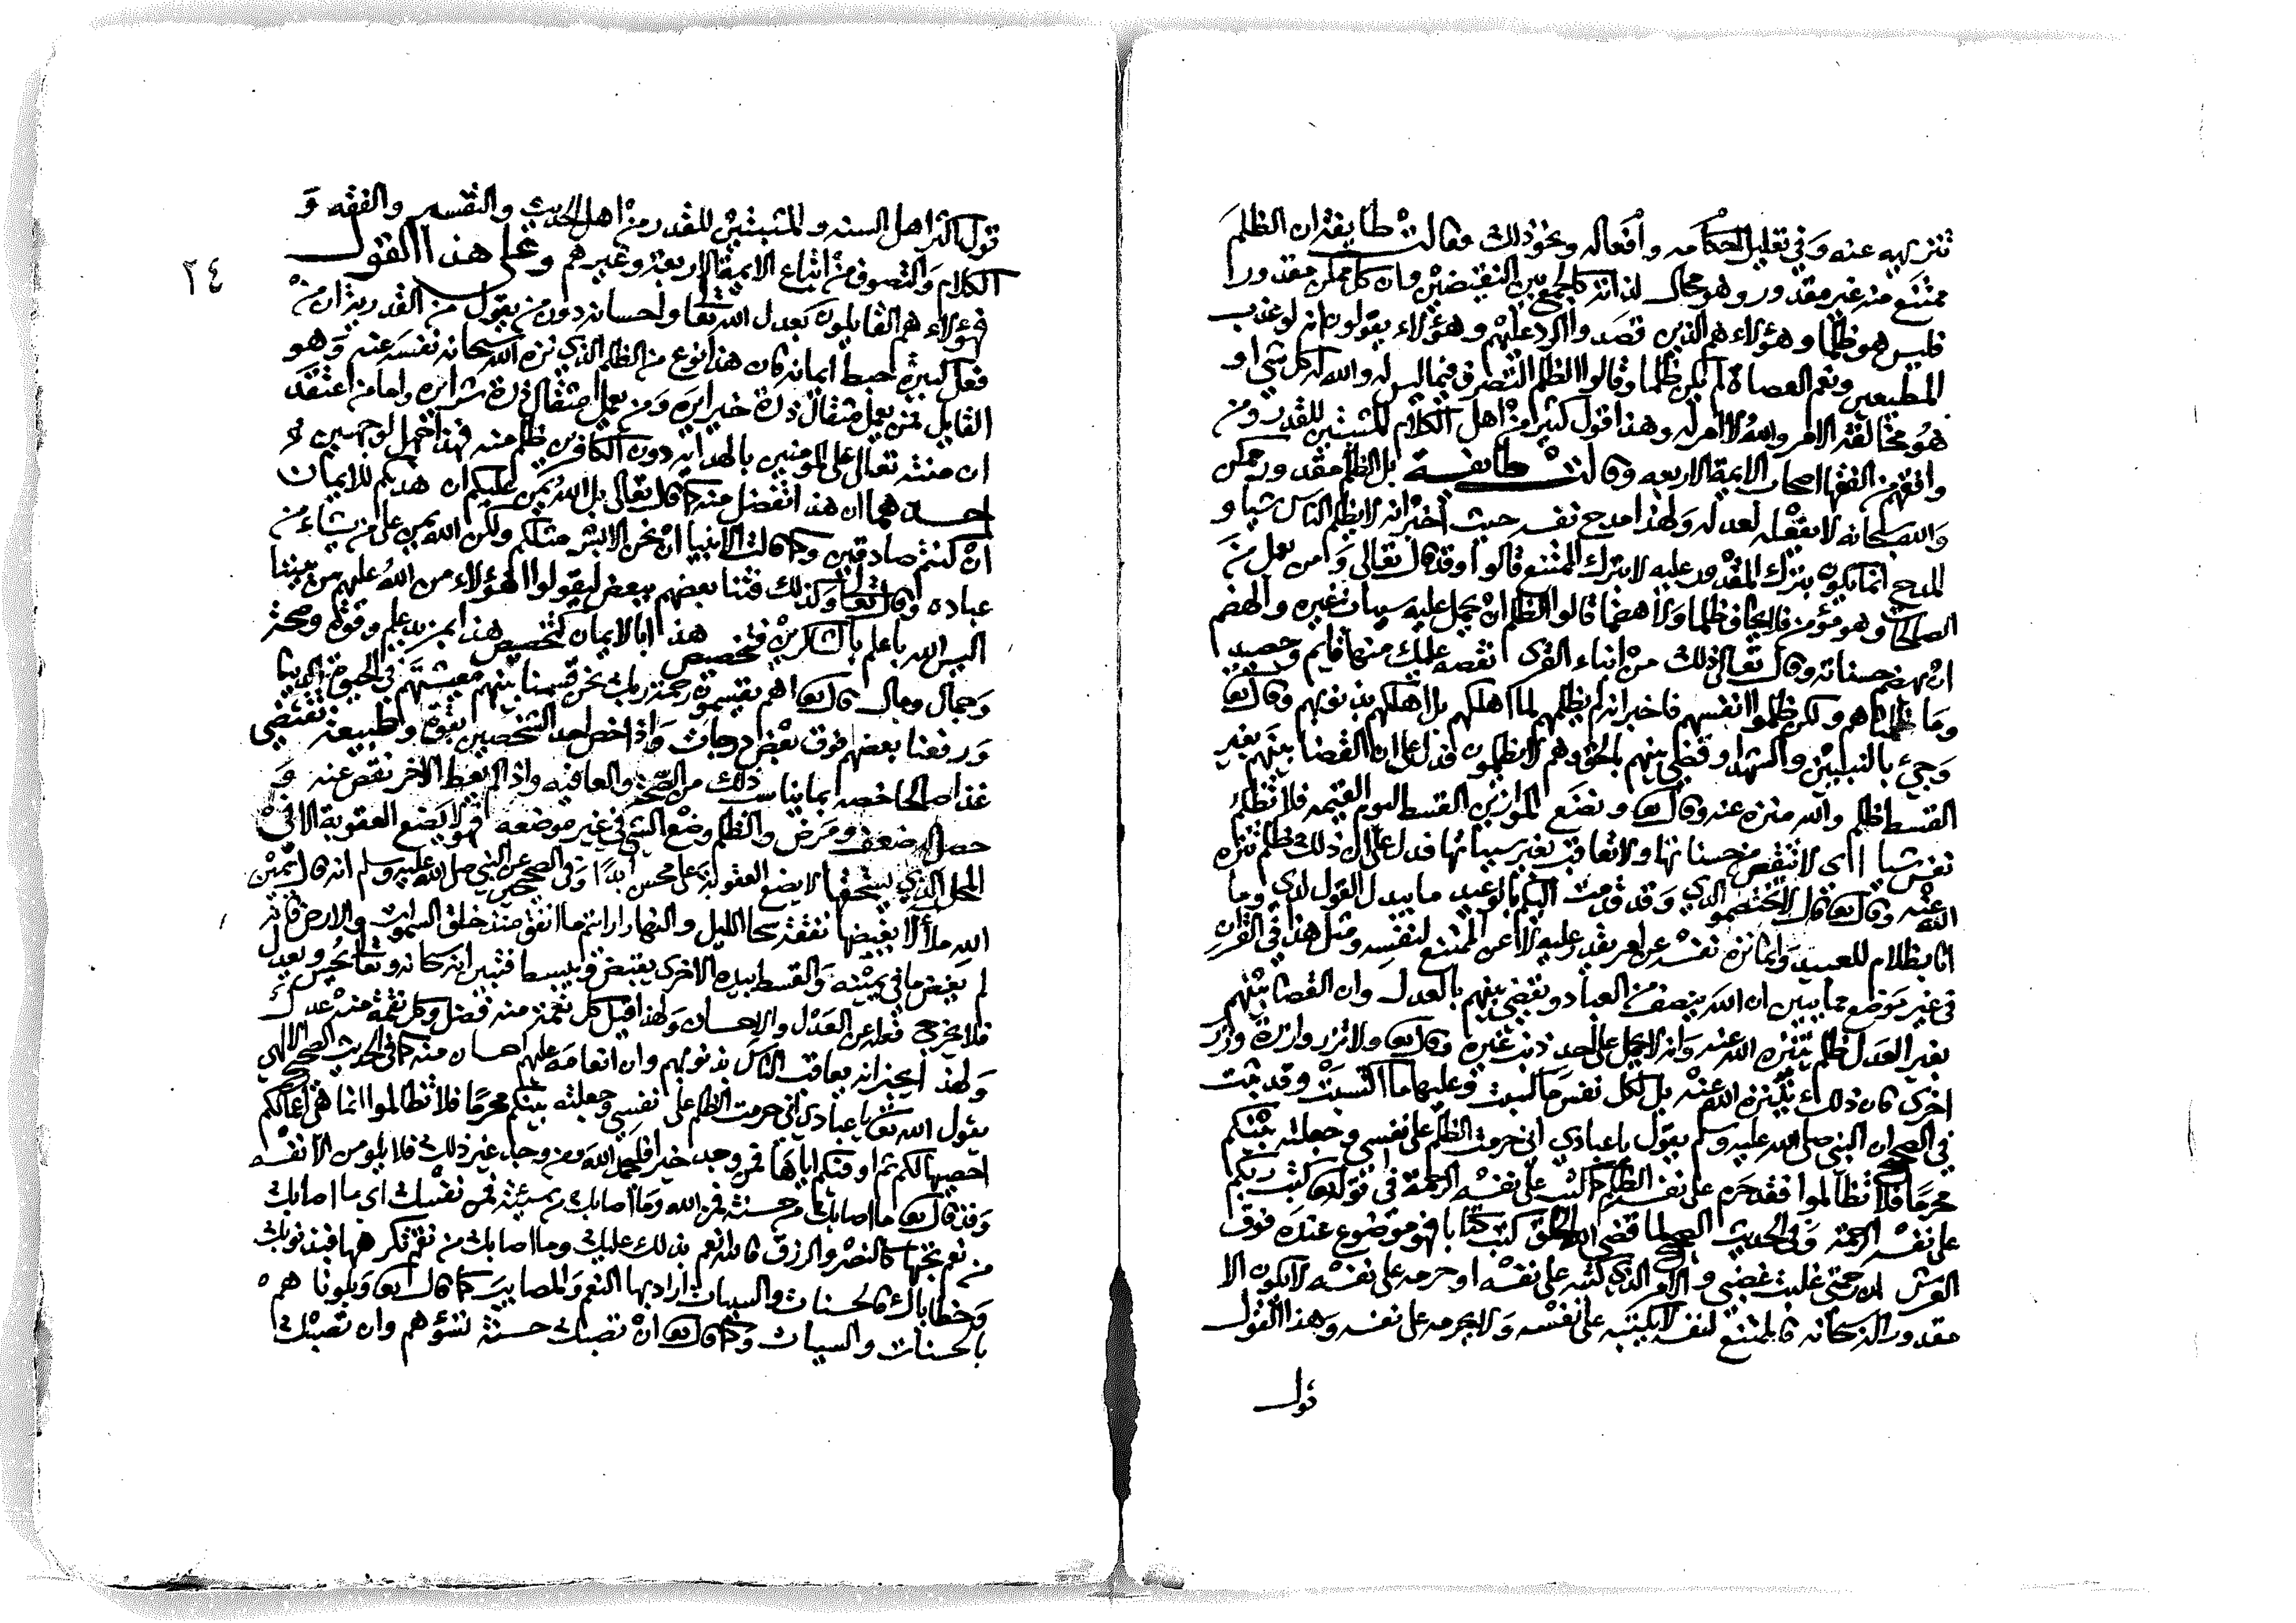 تنزيهه عنه وفي تعليل احكامه وافعاله ونحو ذلك فقالت طايفة ان الظلم
ممتنع منه غير مقدور وهو محال لذاته كالجمع بين النقيضين وان كل ممكن مقدورا
فليس هو ظلما وهؤلاء هم الذين قصدوا الرد عليهم وهؤلاء يقولون انه لو عذب
المطيعين ونعم العصاة لم يكن ظلما وقالوا الظلم التصرف فيما ليس له والله له كل شي او
هو مخالفة الامر والله لا امر له وهذا قول كثير من اهل الكلام المثبتين للقدر ومن
وافقهم من الفقها اصحاب الايمة الاربعه وقالت طايفة بل الظلم مقدور ممكن
والله سبحانه لا يفعله لعدله ولهذا مدح نفسه حيث اخبر انه لا يظلم الناس شيا و
المدح انما يكون بترك المقدور عليه لا بترك الممتنع قالوا وقد قال تعالى ومن يعمل من
الصالحات وهو مؤمن فلا يخاف ظلما ولا هضما قالوا الظلم ان يحمل عليه سيات غيره والهضم
ان يهضم حسناته وقال تعالى ذلك من انباء القرى نقصه عليك منها قايم وحصيد
وما ظلمناهم ولكن ظلموا انفسهم فاخبر انه لم يظلمهم لما اهلكهم بل اهلكهم بذنوبهم وقال تع
وجيء بالنبيين والشهدا وقضى بينهم بالحق وهم لا يظلمون فدل على ان القضا بينهم بغير
القسط ظلم والله منزه عنه وقال تع ونضع الموازين القسط ليوم القيمه فلا تظلم
نفس شيا اي لا تنقص من حسناتها ولا تعاقب بغير سيياتها فدل على ان ذلك ظلم تنزه
الله عنه وقال تع قال لا تختصموا لدي وقد قدمت اليكم بالوعيد ما يبدل القول لدي وما
انا بظلام للعبيد وانما نزه نفسه عن امر يقدر عليه لا عن الممتنع لنفسه ومثل هذا في القران
في غير موضع مما يبين ان الله ينصف من العباد ويقضي بينهم بالعدل وان القضا بينهم
بغير العدل ظلم يتنزه الله عنه وانه لا يحمل على احد ذنب غيره وقال تع ولا تزر وازرة وزر
اخرى فان ذلك يتنزه الله عنه بل لكل نفس ما كسبت وعليها ما اكتسبت وقد ثبت
في الصحيح ان النبي صلى الله عليه وسلم يقول يا عبادي اني حرمت الظلم على نفسي وجعلته بينكم
محرما فلا تظالموا فقد حرم على نفسه الظلم كما كتب على نفسه الرحمة في قوله تع كتب ربكم
على نفسه الرحمة وفي الحديث الصحيح لما قضى الله الخلق كتب كتابا فهو موضوع عنده فوق
العرش ان رحمتي غلبت غضبي والامر الذي كتبه على نفسه او حرمه على نفسه لا يكون الا
مقدورا له سبحانه فالممتنع لنفسه لا يكتبه على نفسه ولا يحرمه على نفسه وهذا القول
قول
٢٤
قول اكثر اهل السنه والمثبتين للقدر من اهل الحديث والتفسير والفقه و
الكلام والتصوف من اتباع الايمة الاربعة وغيرهم وعلى هذا القول
فهؤلاء هم القايلون بعدل الله تعا واحسانه دون من يقول من القدرية ان من
فعل كبيرة احبط ايمانه فان هذا نوع من الظلم الذي نزه الله سبحانه نفسه عنه وهو
القايل فمن يعمل مثقال ذرة خيرا يره ومن يعمل مثقال ذرة شرا يره واما من اعتقد
ان منته تعالى على المومنين بالهداية دون الكافرين ظلم منه فهذا جهل لوجهين
احدهما ان هذا تفضل منه كما قال تعالى بل الله يمن عليكم ان هديكم للايمان
ان كنتم صادقين وكما قالت الانبيا ان نحن الا بشر مثلكم ولكن الله يمن على من يشاء من
عباده وقال تعا وكذلك فتنا بعضهم ببعض ليقولوا اهؤلاء من الله عليهم من بيننا
اليس الله باعلم بالشاكرين فتخصيص هذا بالايمان كتخصيص هذا بمزيد علم وقوة وصحة
وجمال ومال قال تع اهم يقسمون رحمة ربك نحن قسمنا بينهم معيشتهم في الحيوة الدنيا
ورفعنا بعضهم فوق بعض درجات واذا خص احد الشخصين بقوة وطبيعة تقتضي
غذا صالحا خصه بما يناسب ذلك من الصحة والعافيه واذا لم يعط الاخر نقص عنه و
حصل له ضعف ومرض والظلم وضع الشي في غير موضعه فهو لا يضع العقوبة الا في
المحل الذي يستحقها لا يضع العقوبة على محسن ابدا وفي الصحيحين عن النبي صلى الله عليه وسلم انه قال يمين
الله ملأ لا يغيضها نفقة سحا الليل والنهار ارايتم ما انفق منذ خلق السموات والارض فانه
لم يغض ما في يمينه والقسط بيده الاخرى يقبض ويبسط فتبين انه سبحانه وتعا يحسن ويعدل
فلا يخرج فعله عن العدل والاحسان ولهذا قيل كل نعمة منه فضل وكل نقمة منه عدل
ولهذا يخبر انه يعاقب الناس بذنوبهم وان انعامه عليهم احسان منه كما في الحديث الصحيح الالهي
يقول الله تعا يا عبادي اني حرمت الظلم على نفسي وجعلته بينكم محرما فلا تظالموا انما هي اعمالكم
احصيها لكم ثم اوفيكم اياها فمن وجد خيرا فليحمد الله ومن وجد غير ذلك فلا يلومن الا نفسه
وقد قال تع ما اصابك من حسنة فمن الله وما اصابك من سيئة فمن نفسك اي ما اصابك
من نعم تحبها كالنصر والرزق فالله انعم بذلك عليك وما اصابك من نقم تكرهها فبذنوبك
وخطاياك فالحسنات والسيات اراد بها النعم والمصايب كما قال تع وبلوناهم
بالحسنات والسيات وكما قال تع ان تصبك حسنة تسؤهم وان تصبك